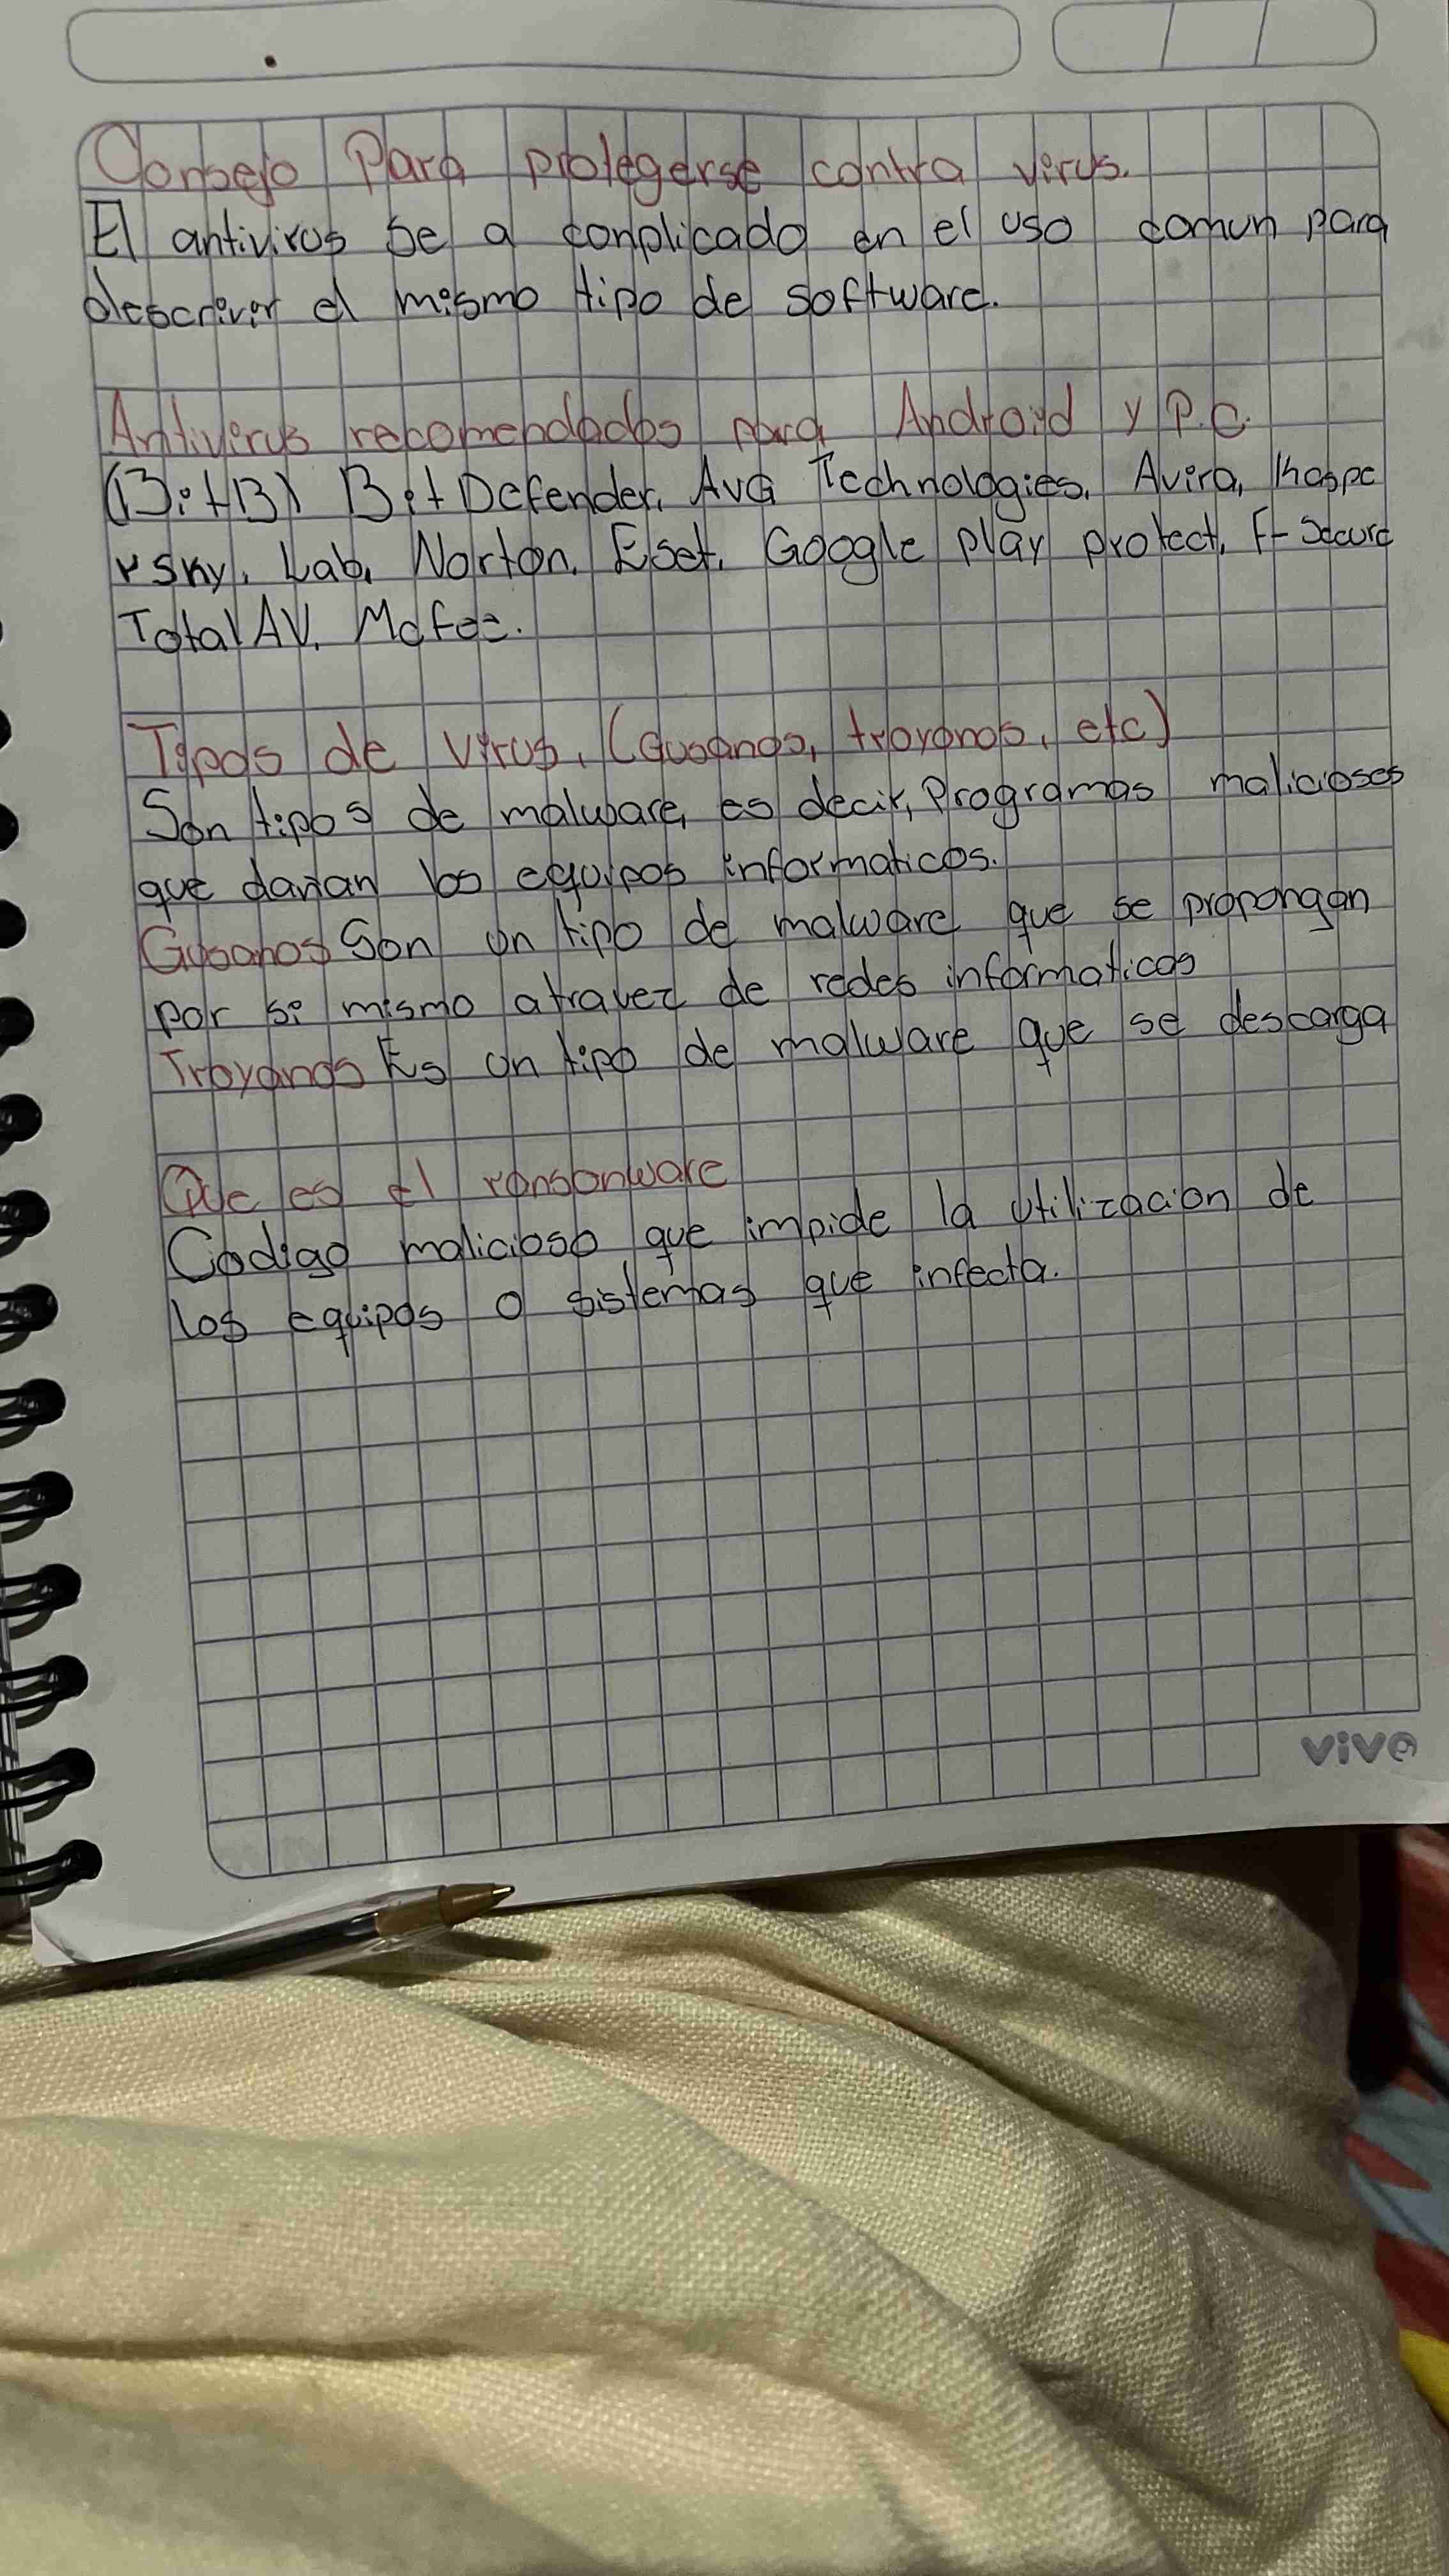 Consejo Para protegerse contra virus.
El antivirus se a conplicado en el uso comun para
descrivir el mismo tipo de software.
Antivirus recomendados para Android y P.C.
(BitB) Bit Defender, AVG Technologies, Avira, Kaspe
rsky, Lab, Norton, Eset, Google play protect, F-Secure
Total AV, Mcfee.
Tipos de virus, (Gusanos, troyanos, etc)
Son tipos de malware, es decir, Programas maliciosos
que danan los equipos informaticos.
Gusanos Son un tipo de malware que se propongan
por si mismo atravez de redes informaticas
Troyanos Es un tipo de malware que se descarga
Que es el ransonware
Codigo malicioso que impide la utilizacion de
los equipos o sistemas que infecta.
vive